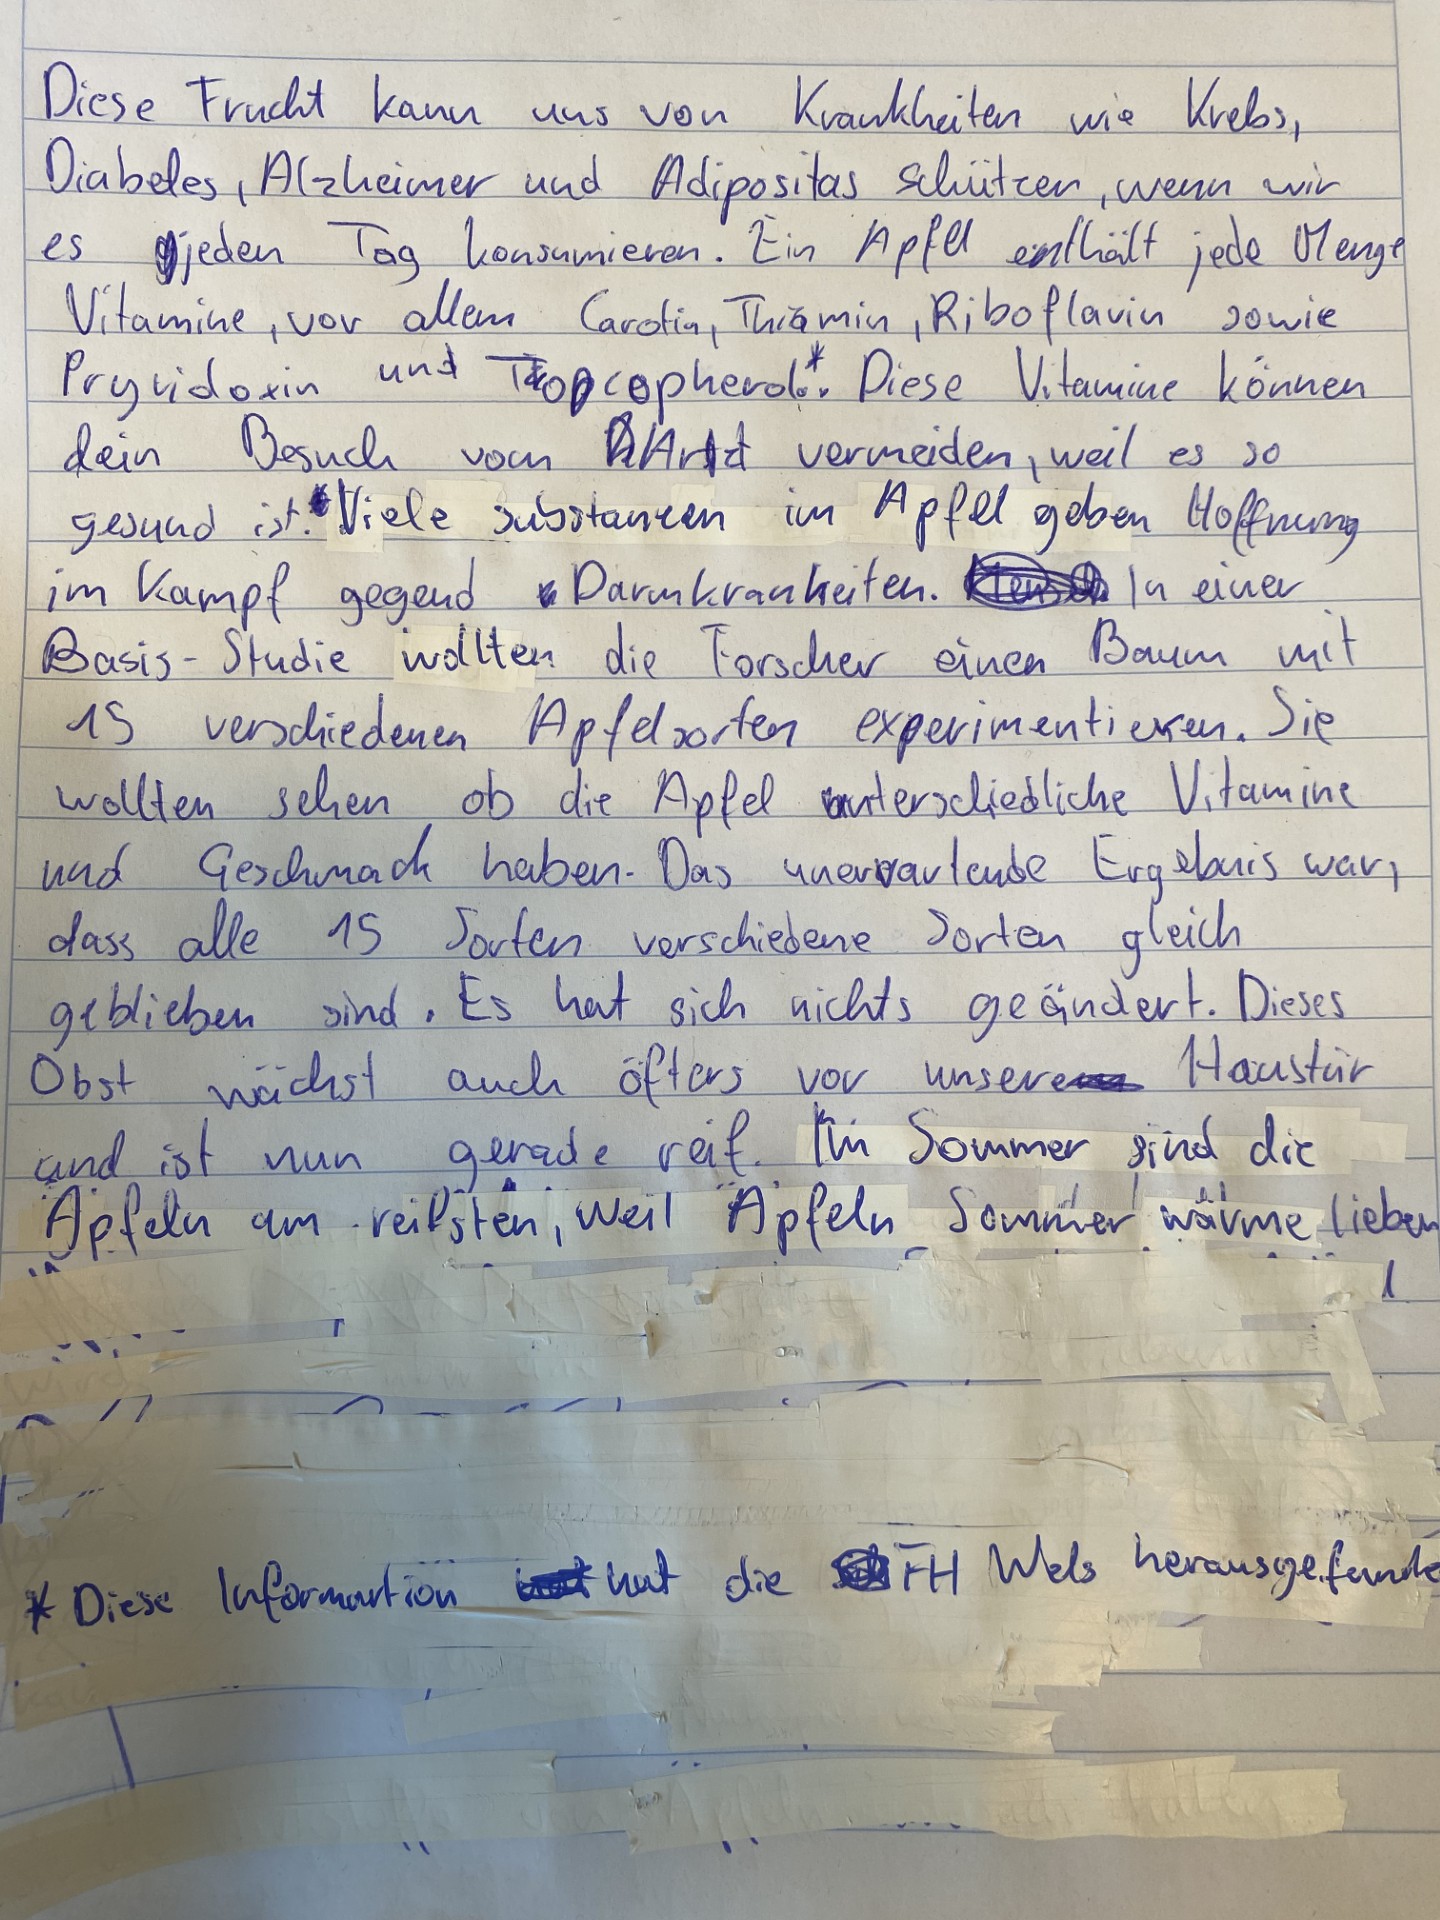 Diese Frucht kann uns von Krankheiten wie Krebs,
Diabetes, Alzheimer und Adipositas schützen, wenn wir
es jeden Tag konsumieren. Ein Apfel enthält jede Menge
Vitamine, vor allem Carotin, Thiamin, Riboflavin sowie
Pryridoxin und Topcopherol*. Diese Vitamine können
dein Besuch vom Arzt vermeiden, weil es so
gesund ist. Viele substanzen im Apfel geben Hoffnung
im Kampf gegend Darmkrankheiten. In einer
Basis-Studie wollten die Forscher einen Baum mit
15 verschiedenen Apfelsorten experimentieren. Sie
wollten sehen ob die Apfel unterschiedliche Vitamine
und Geschmack haben. Das unerwartende Ergebnis war,
dass alle 15 Sorten verschiedene Sorten gleich
geblieben sind. Es hat sich nichts geändert. Dieses
Obst wächst auch öfters vor unsere Haustür
und ist nun gerade reif. Im Sommer sind die
Äpfeln am reifsten, weil Äpfeln Sommer wärme lieben
* Diese Information hat die FH Wels herausgefunde